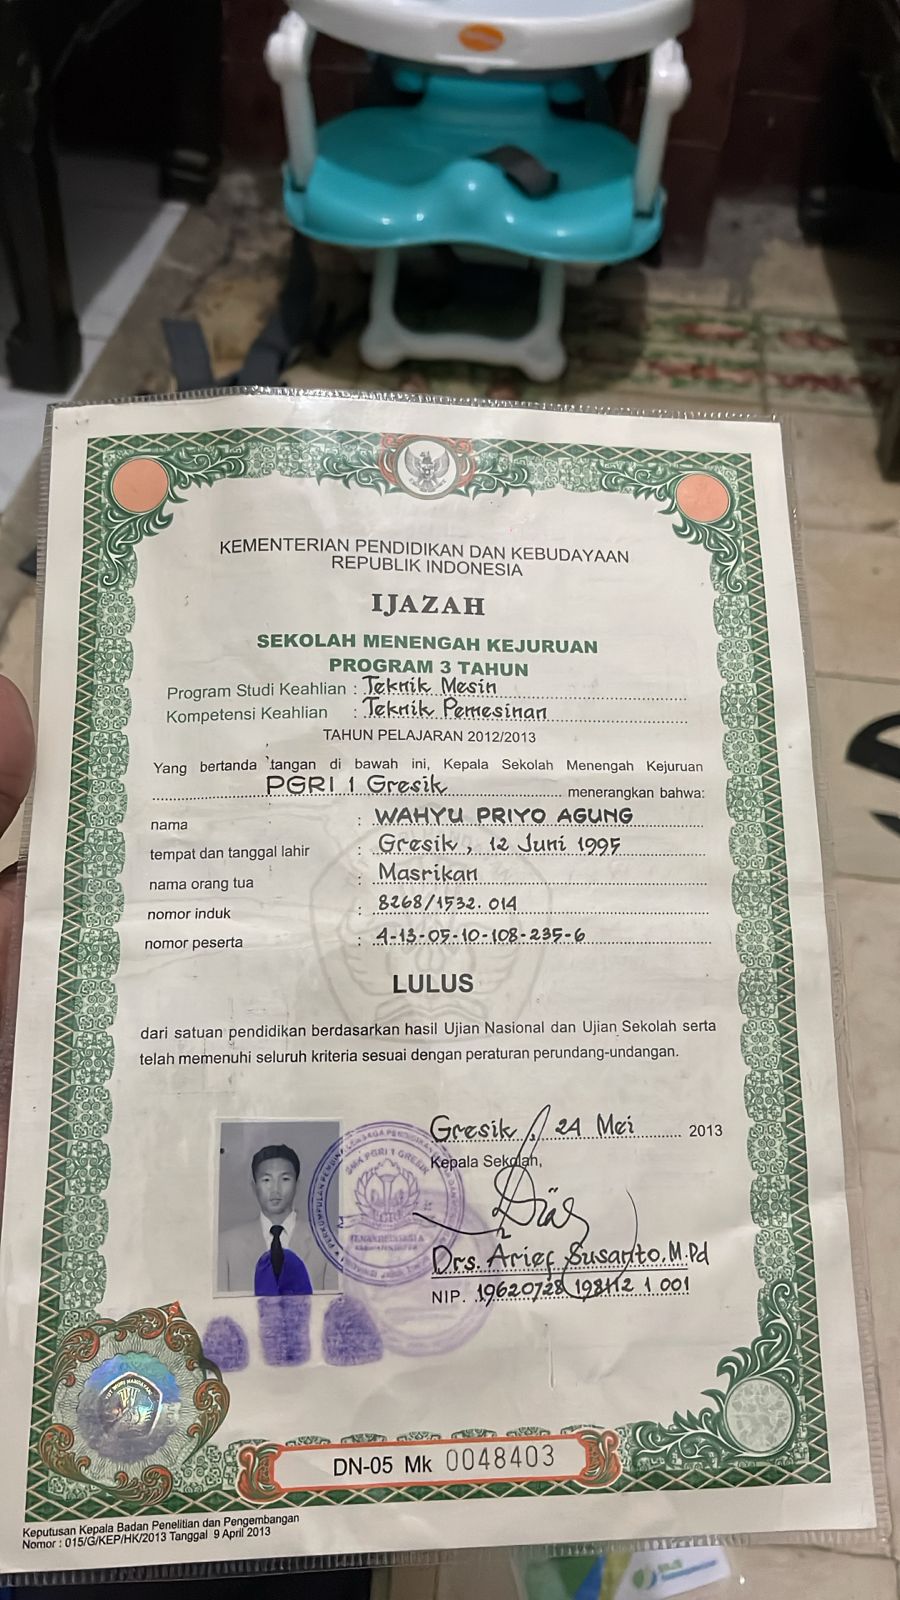 KEMENTERIAN PENDIDIKAN DAN KEBUDAYAAN
REPUBLIK INDONESIA
IJAZAH
SEKOLAH MENENGAH KEJURUAN
PROGRAM 3 TAHUN
Program Studi Keahlian : Teknik Mesin
Kompetensi Keahlian : Teknik Pemesinan
TAHUN PELAJARAN 2012/2013
Yang bertanda tangan di bawah ini, Kepala Sekolah Menengah Kejuruan
PGRI 1 Gresik menerangkan bahwa:
nama : WAHYU PRIYO AGUNG
tempat dan tanggal lahir : Gresik, 12 Juni 1995
nama orang tua : Masrikan
nomor induk : 8268/1532.014
nomor peserta : 4-13-05-10-108-235-6
LULUS
dari satuan pendidikan berdasarkan hasil Ujian Nasional dan Ujian Sekolah serta
telah memenuhi seluruh kriteria sesuai dengan peraturan perundang-undangan.
Gresik, 24 Mei 2013
Kepala Sekolah,
SMK PGRI 1 GRESIK
Drs. Arief Susanto.M.Pd
NIP. 19620728 198112 1 001
TUT WURI HANDAYANI
DN-05 Mk 0048403
Keputusan Kepala Badan Penelitian dan Pengembangan
Nomor : 015/G/KEP/HK/2013 Tanggal 9 April 2013